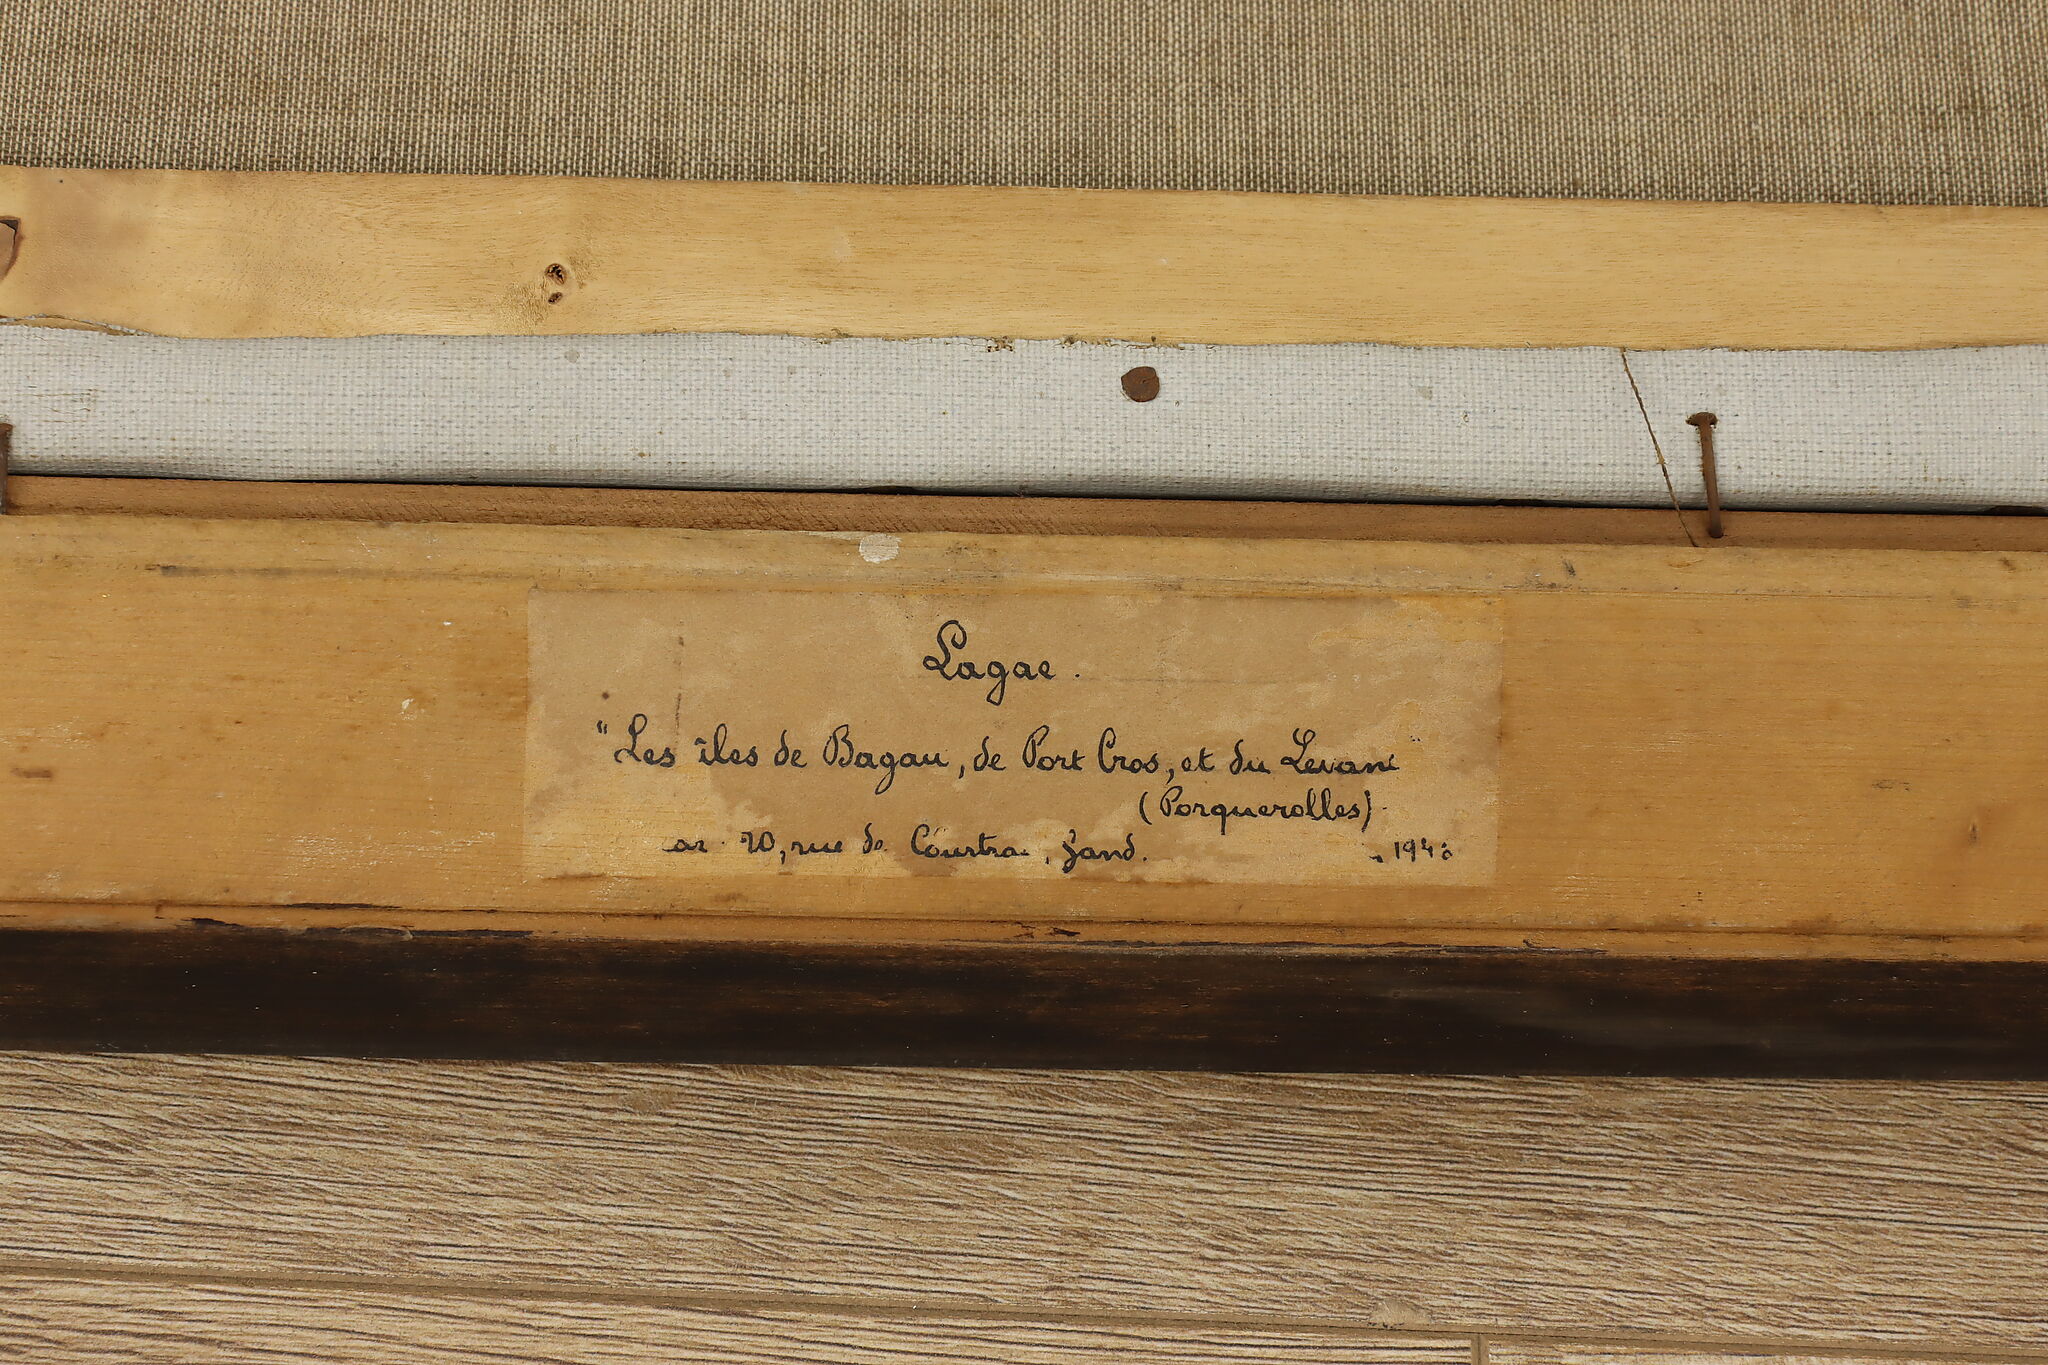 Lagae.
"Les îles de Bagau, de Port Cros, et du Levant"
(Porquerolles).
20, rue de Courtrai, Gand.